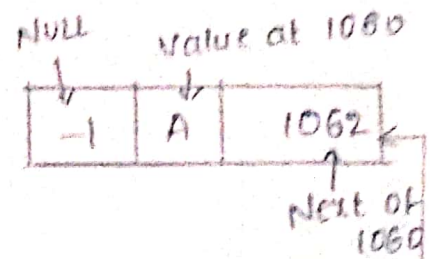 NULL
value at 1060
-1 A 1062
Next of
1060